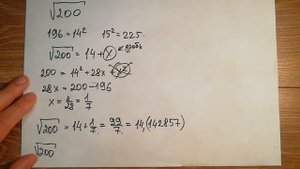 √200
196 = 14² 15² = 225
√200 = 14 + x дробь
200 = 14² + 28x + x²
28x = 200 - 196
x = 4/28 = 1/7
√200 = 14 + 1/7 = 99/7 = 14,(142857)
√200